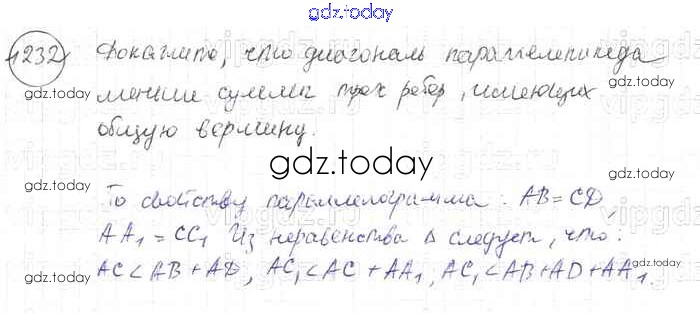 gdz.today
1232 Докажите, что диагональ параллелепипеда
меньше суммы трех ребер, имеющих
общую вершину.
gdz.today
gdz.today
gdz.today
По свойству параллелограмма: AB=CD,
AA₁=CC₁ Из неравенства Δ следует, что:
AC<AB+AD, AC₁<AC+AA₁, AC₁<AB+AD+AA₁.
gdz.today
gdz.today
gdz.today